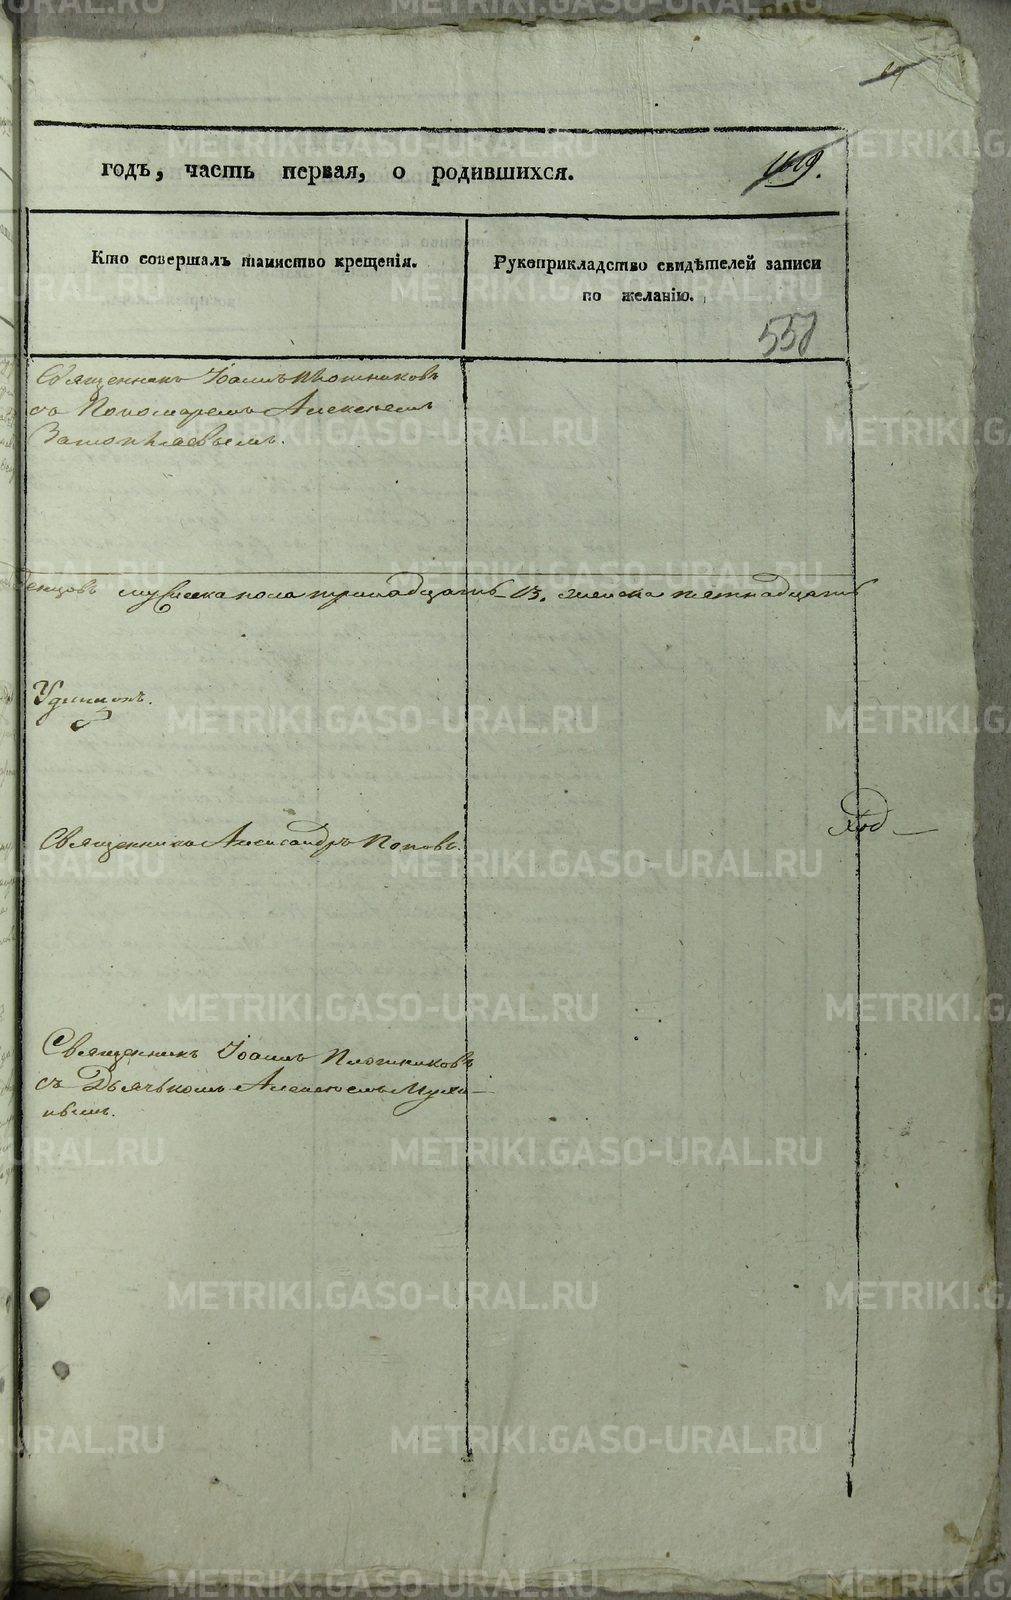 69
годъ, часть первая, о родившихся.
Кто совершалъ таинство крещенія.
Рукоприкладство свидѣтелей записи
по желанію.
558
Священникъ Іоаннъ Плотниковъ
съ Пономаремъ Алексѣемъ
денцовъ мужеска пола тринадцать 13. женска пятнадцать
Священникъ Александръ Поповъ.
Священникъ Іоаннъ Плотниковъ
съ Дьячькомъ Алексѣемъ Мухи-
нымъ.
METRIKI.GASO-URAL.RU